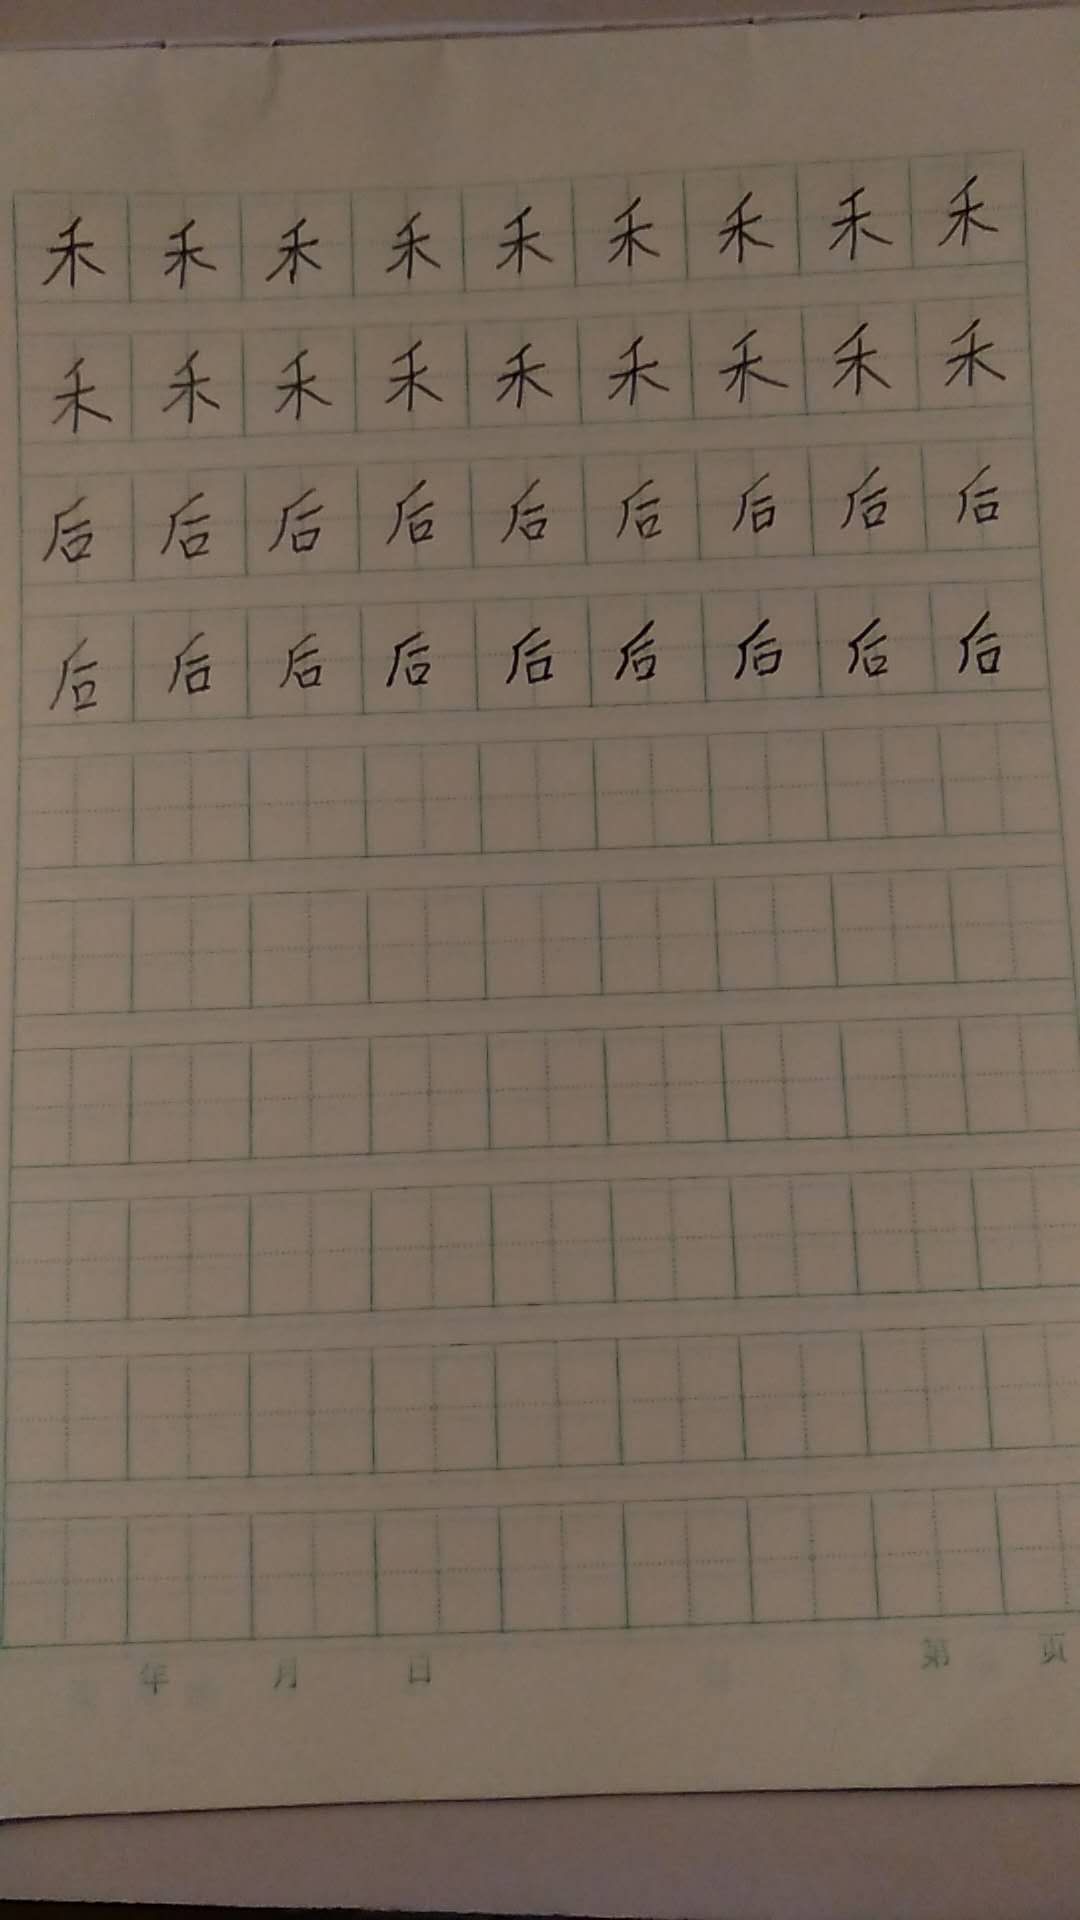 禾禾禾禾禾禾禾禾禾
禾禾禾禾禾禾禾禾禾
后后后后后后后后后
后后后后后后后后后
年 月 日 第 页